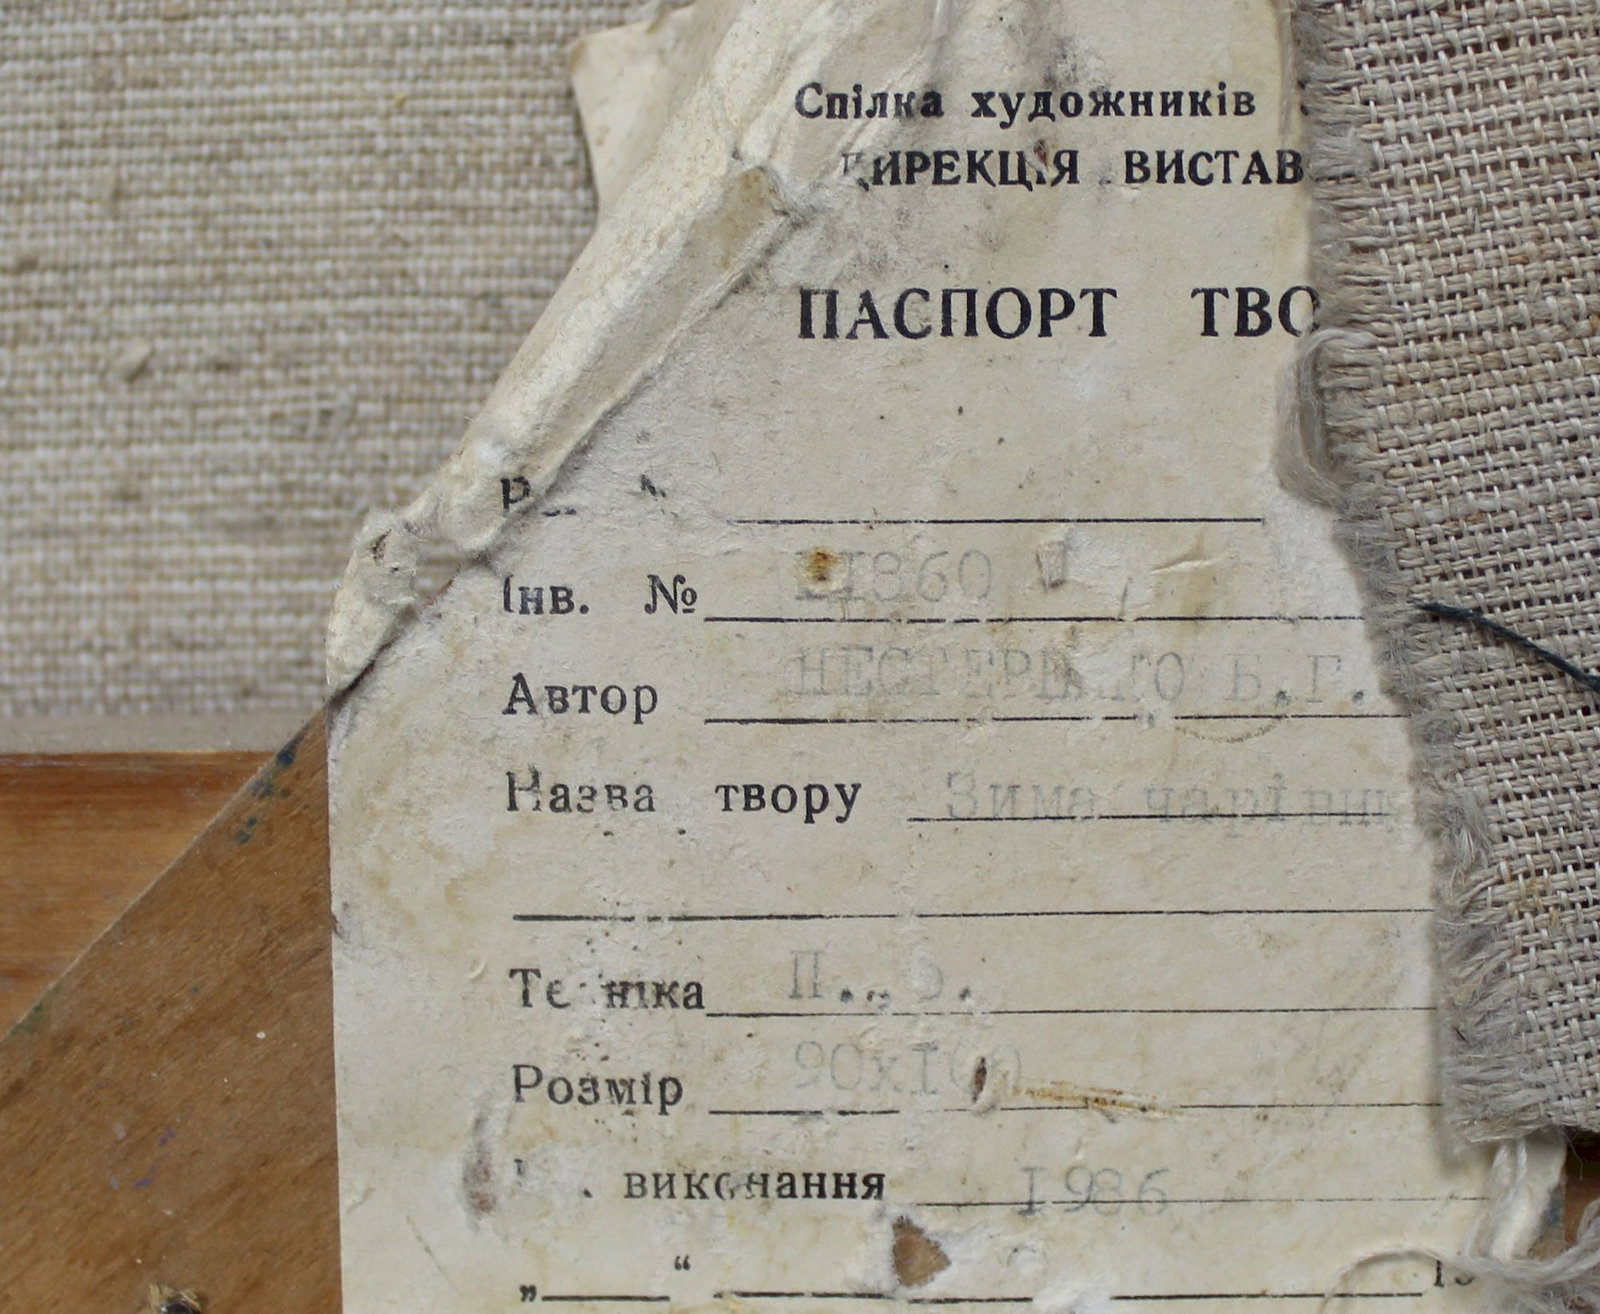 Спілка художників
ДИРЕКЦІЯ ВИСТАВ
ПАСПОРТ ТВО
Інв. № 11860
Автор НЕСТЕРЕНКО Б.Г.
Назва твору Зима чарівни
Техніка П.,о.
Розмір
виконання 1986
„ “ 19